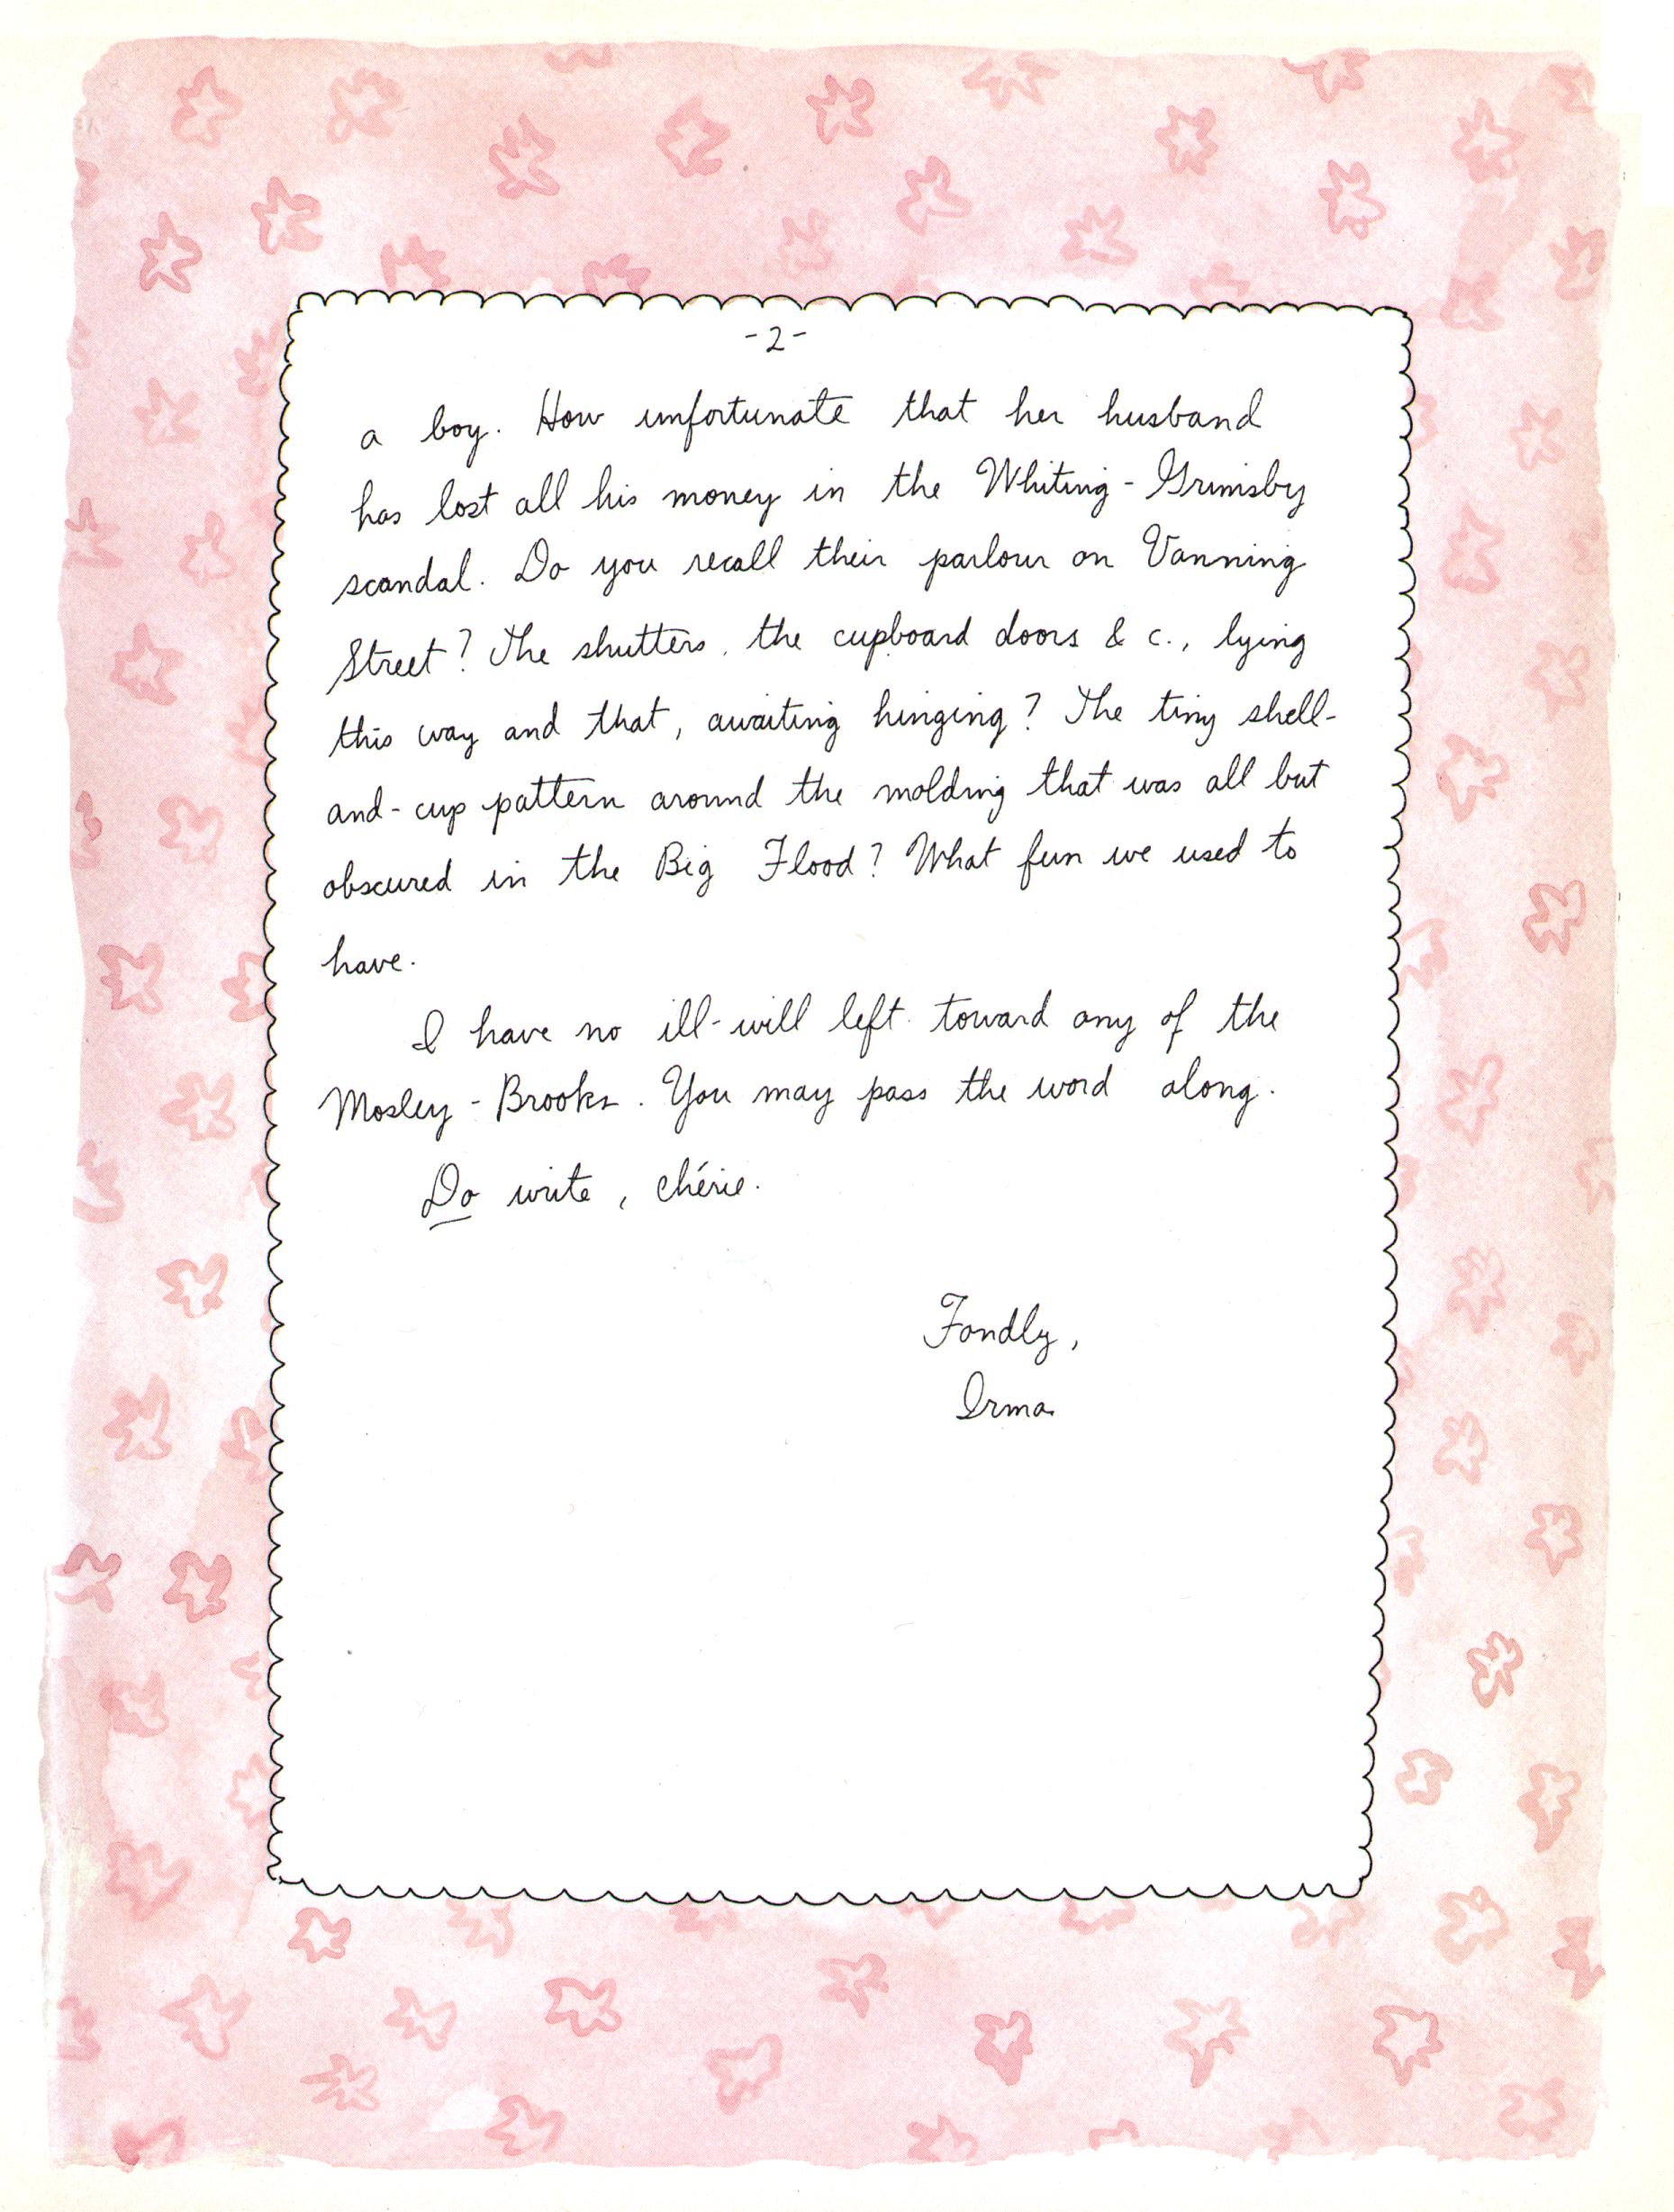 -2-
a boy. How unfortunate that her husband
has lost all his money in the Whiting-Grimsby
scandal. Do you recall their parlour on Vanning
Street? The shutters, the cupboard doors & c., lying
this way and that, awaiting hinging? The tiny shell-
and-cup pattern around the molding that was all but
obscured in the Big Flood? What fun we used to
have.
I have no ill-will left toward any of the
Mosley-Brooks. You may pass the word along.
Do write, chérie.
Fondly,
Irma